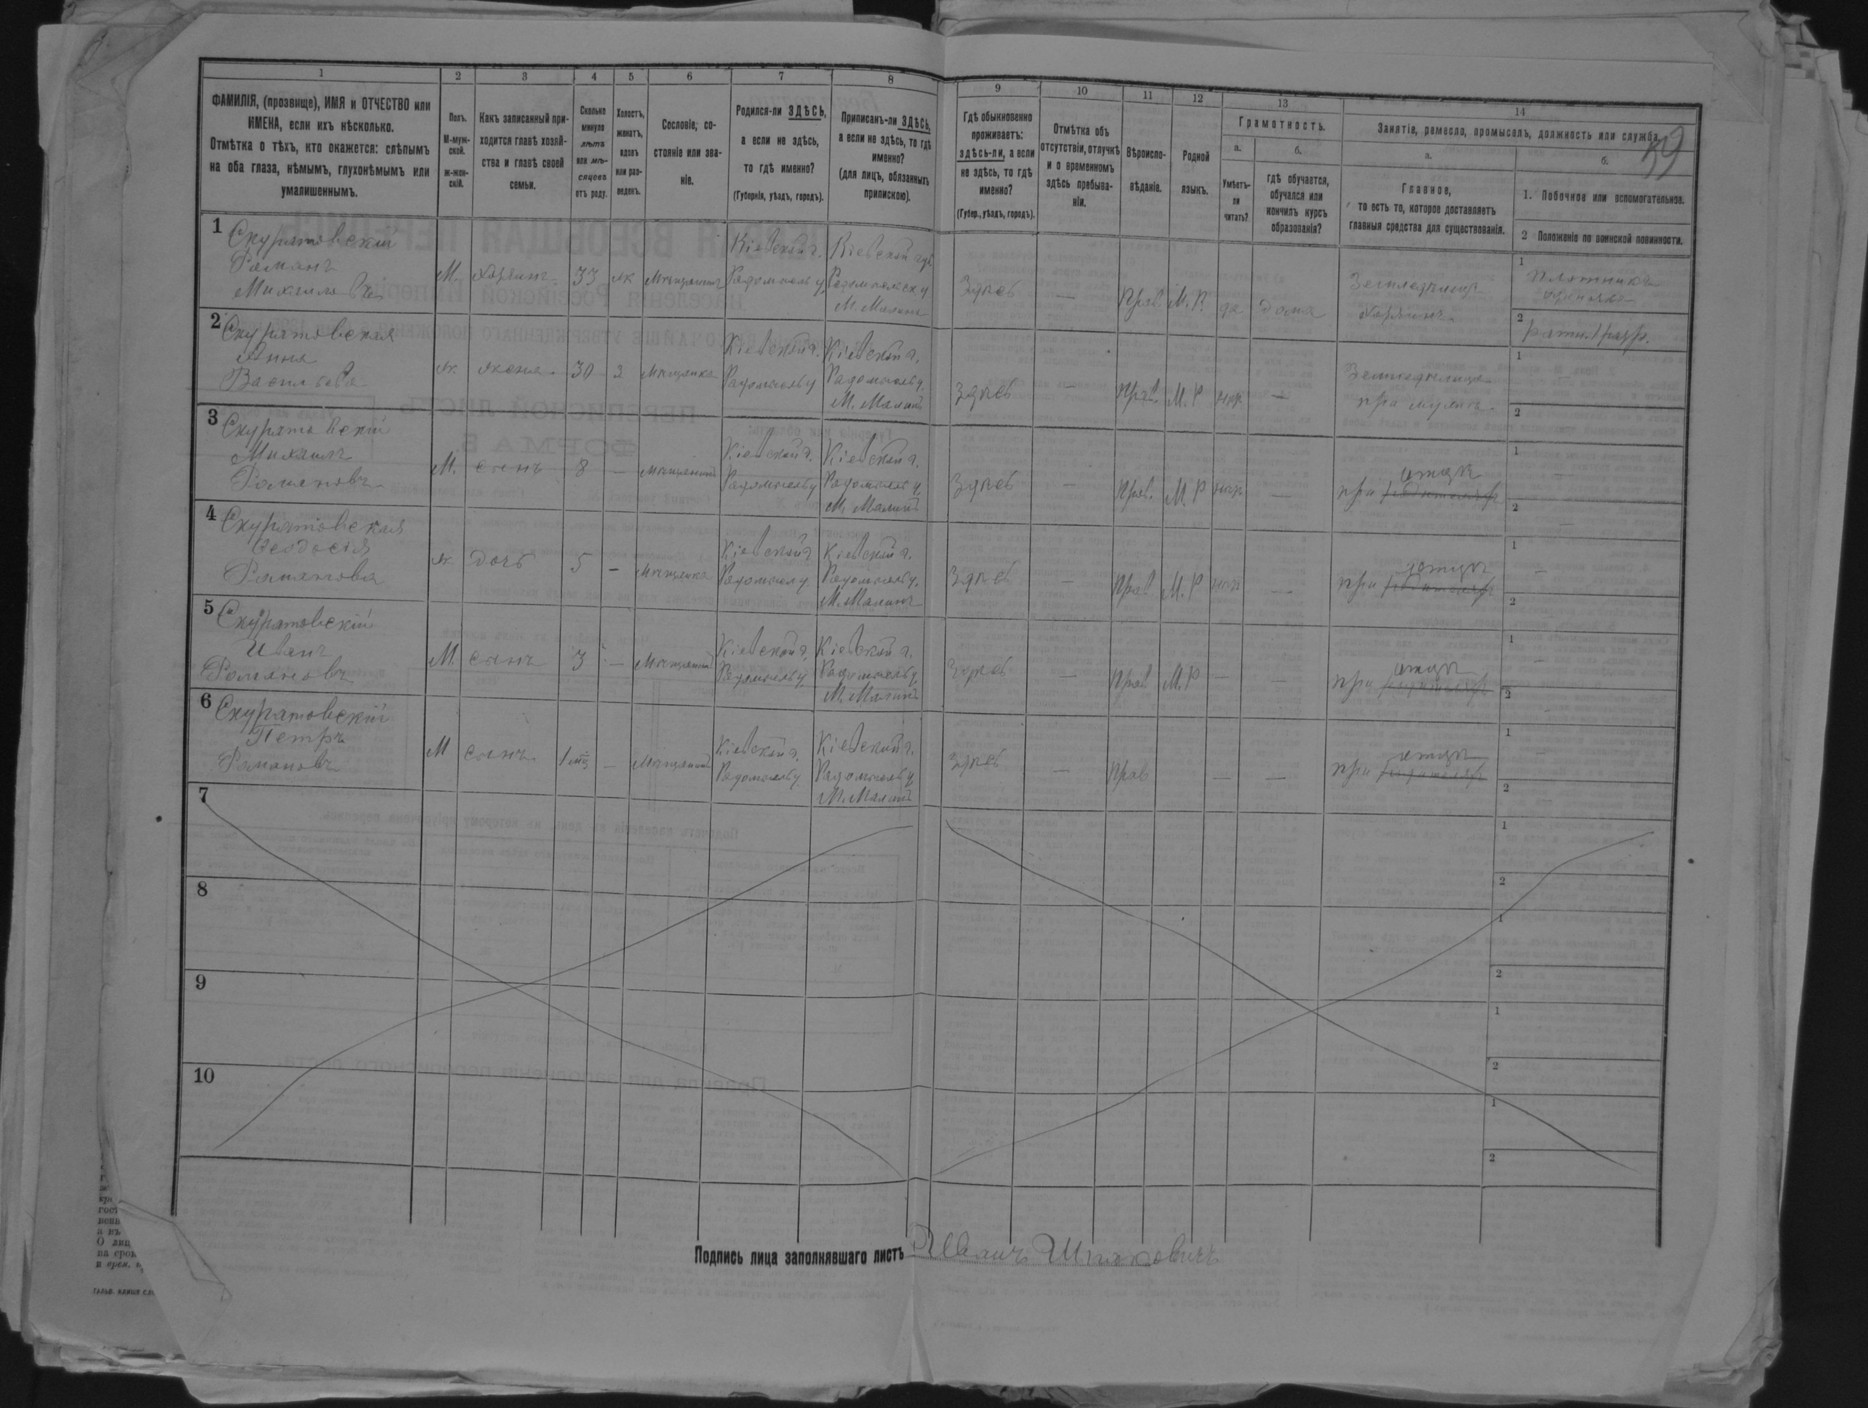 1
2
3
4
5
6
7
8
9
10
11
12
13
14
ФАМИЛІЯ, (прозвище), ИМЯ и ОТЧЕСТВО или
ИМЕНА, если ихъ нѣсколько.
Отмѣтка о тѣхъ, кто окажется: слѣпымъ
на оба глаза, нѣмымъ, глухонѣмымъ или
умалишеннымъ.
Полъ.
М-муж-
ской.
ж-жен-
скій.
Какъ записанный при-
ходится главѣ хозяй-
ства и главѣ своей
семьи.
Сколько
минуло
лѣтъ
или мѣ-
сяцевъ
отъ роду.
Холостъ,
женатъ,
вдовъ
или раз-
веденъ.
Сословіе, со-
стояніе или зва-
ніе.
Родился-ли ЗДѢСЬ,
а если не здѣсь,
то гдѣ именно?
(Губернія, уѣздъ, городъ).
Приписанъ-ли ЗДѢСЬ,
а если не здѣсь, то гдѣ
именно?
(для лицъ, обязанныхъ
припискою).
Гдѣ обыкновенно
проживаетъ:
здѣсь-ли, а если
не здѣсь, то гдѣ
именно?
(Губер., уѣздъ, городъ).
Отмѣтка объ
отсутствіи, отлучкѣ
и о временномъ
здѣсь пребыва-
ніи.
Вѣроиспо-
вѣданіе.
Родной
языкъ.
Грамотность.
а.
Умѣетъ-
ли
читать?
б.
гдѣ обучается,
обучался или
кончилъ курсъ
образованія?
Занятія, ремесло, промыселъ, должность или служба.
39
а.
Главное,
то есть то, которое доставляетъ
главныя средства для существованія.
б.
1. Побочное или вспомогательное.
2 Положеніе по воинской повинности.
1 Скуратовскій
Романъ
Михаиловъ
М. хозяинъ 33 ж Мѣщанинъ
Кіевской г.
Радомысль у.
Кіевской губ
М. Малинъ
Здѣсь — Прав М.Р. да дома
хозяинъ.
1 Плотникъ
2
2 Скуратовская
Анна
Васильева
ж. жена 30 з Мѣщанка
Кіевской г.
Радомысль у
Кіевской г.
Радомысль у.
М. Малинъ
Здѣсь — Прав. М.Р нѣт —
при мужѣ.
1 —
2
3 Скуратовскій
Михаилъ
Романовъ
М. сынъ 8 — Мѣщанинъ
Кіевской г.
Радомысль у
Кіевской г.
Радомысль у.
М. Малинъ
Здѣсь — Прав. М.Р нѣт —
при отцѣ
1 —
2 —
4 Скуратовская
Ѳеодосія
Романова
ж. дочь 5 — Мѣщанка
Кіевской г
Радомысль у
Кіевской г.
Радомысль у.
М. Малинъ
Здѣсь — Прав М.Р нѣт —
при отцѣ
1 —
2
5 Скуратовскій
Иванъ
Романовъ
М. сынъ 3 — Мѣщанинъ
Кіевской г.
Радомысль у
Кіевской г.
Радомысль у.
М. Малинъ
Здѣсь — Прав М.Р — —
при отцѣ
1 —
2
6 Скуратовскій
Петръ
Романовъ
М сынъ. 1 мѣс — Мѣщанинъ
Кіевской г.
Радомысль у
Кіевской г.
Радомысль у
М. Малинъ
Здѣсь — Прав — —
при отцѣ
1 —
2 —
7
1
2
8
1
2
9
1
2
10
1
2
Подпись лица заполнявшаго листъ Иванъ